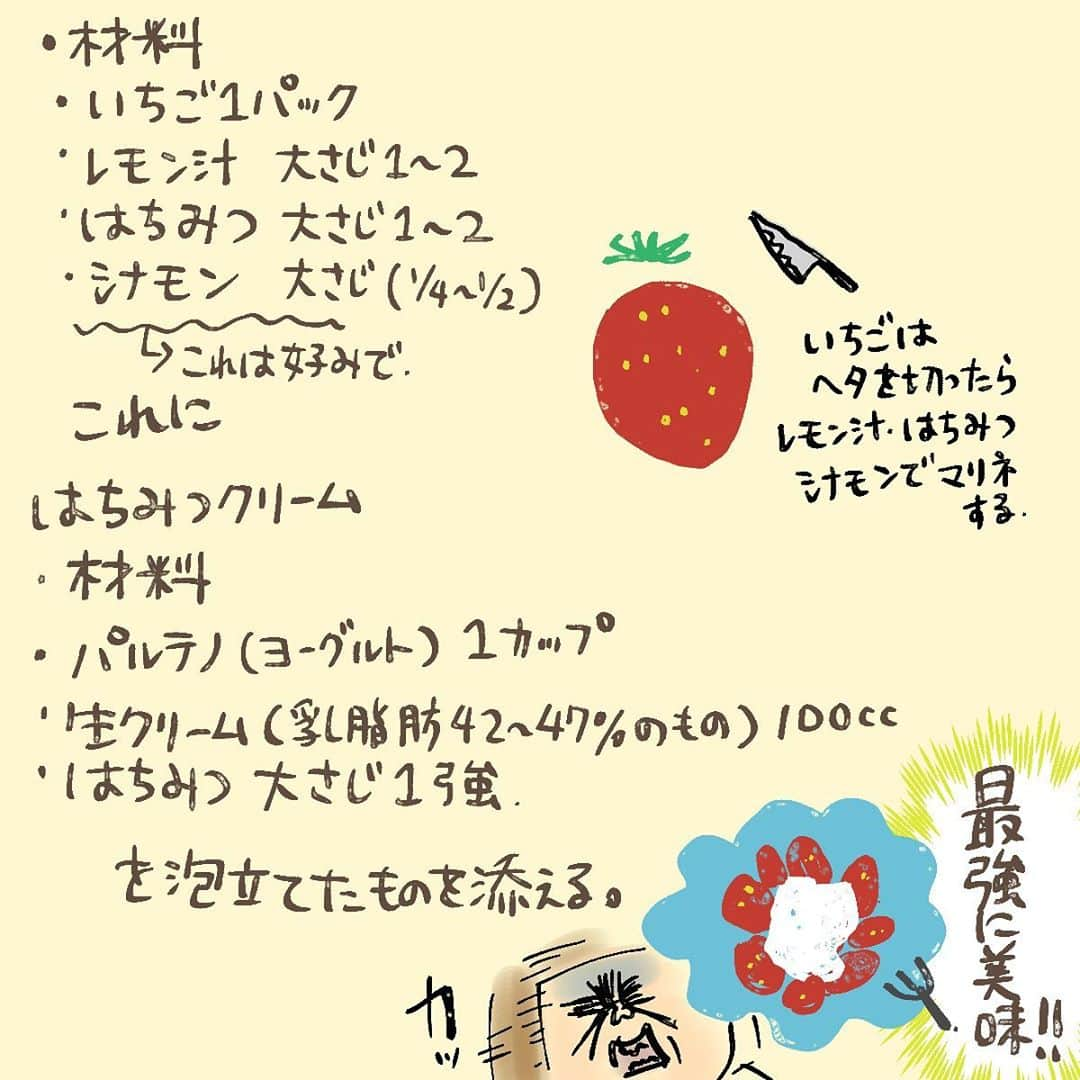 ・材料
・いちご1パック
・レモン汁 大さじ1〜2
・はちみつ 大さじ1〜2
・シナモン 大さじ(1/4〜1/2)
↳これは好みで.
これに
はちみつクリーム
・材料
・パルテノ(ヨーグルト) 1カップ
・生クリーム(乳脂肪42〜47%のもの) 100cc
・はちみつ 大さじ1強.
を泡立てたものを添える。
いちごは
ヘタを切ったら
レモン汁.はちみつ
シナモンでマリネ
する.
最強に美味!!
カッ